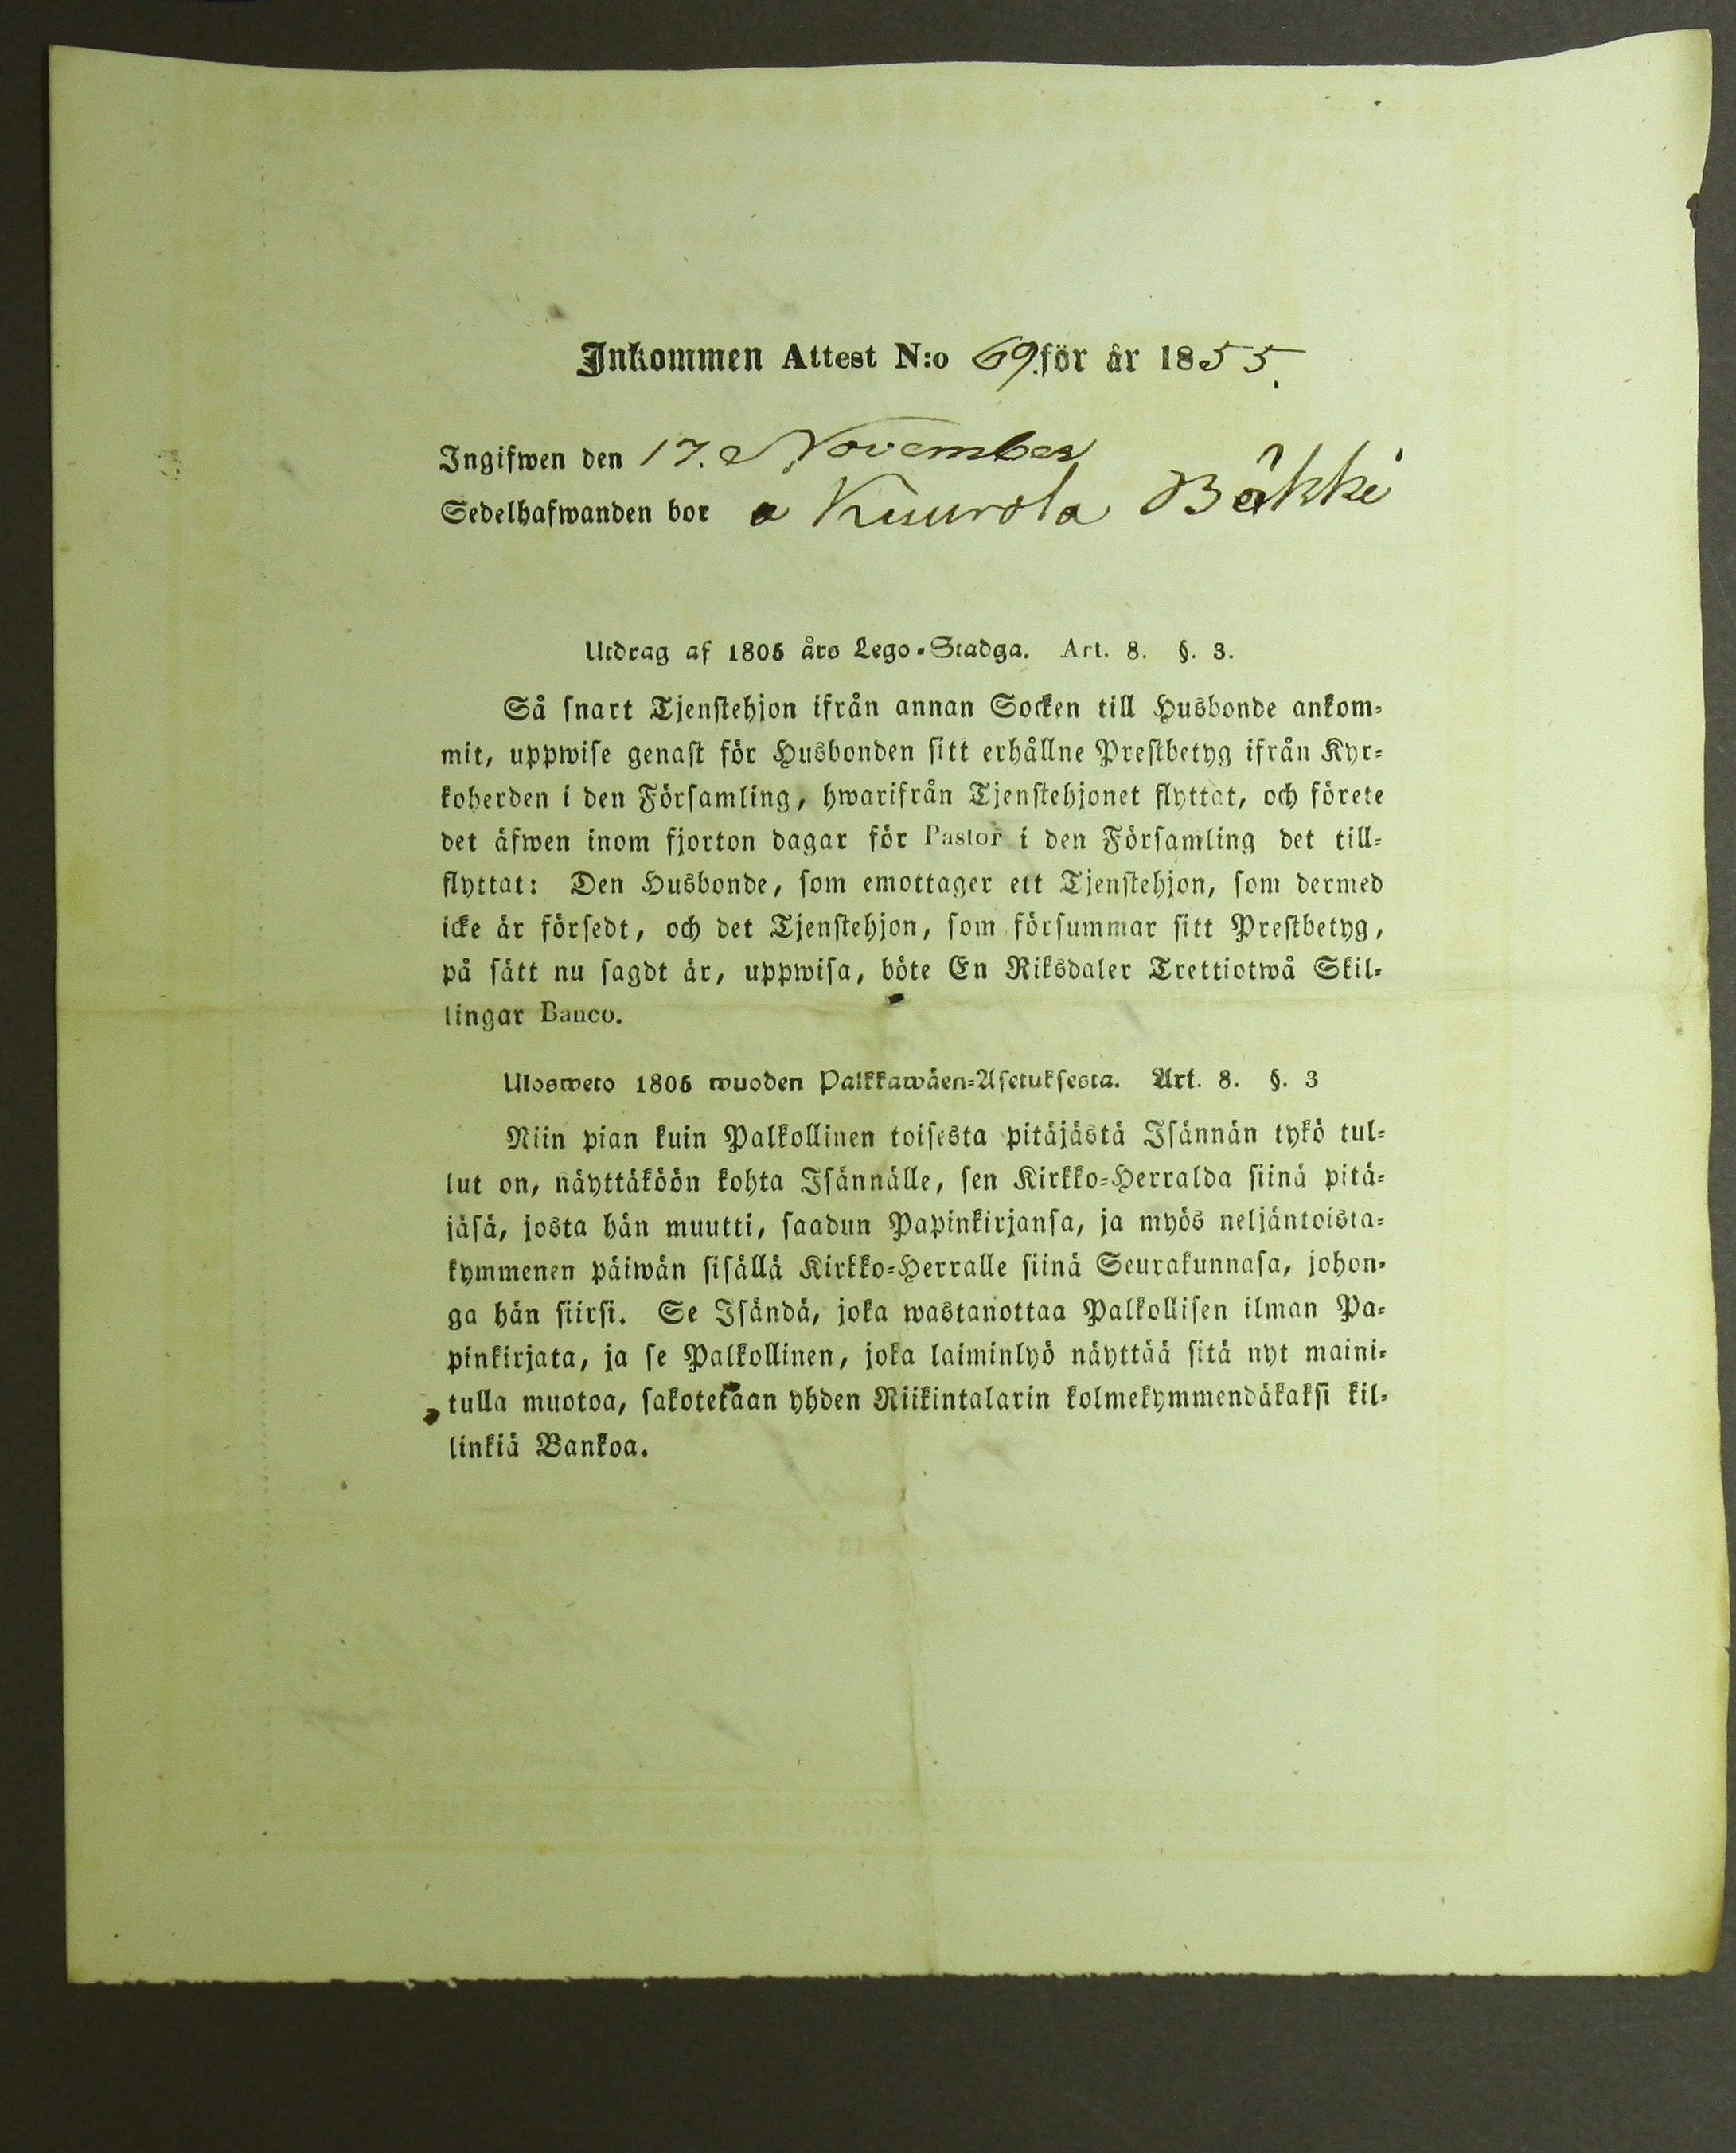 Inkommen Attest N:o 69. för år 1855.
Ingifwen den 17. November
Sedelhafwanden bor a Kuurola Bäkki
Utdrag af 1805 års Lego-Stadga. Art. 8. §. 3.
Så snart Tjenstehjon ifrån annan Socken till Husbonde ankom-
mit, uppwise genast för Husbonden sitt erhållne Prestbetyg ifrån Kyr-
koherden i den Församling, hwarifrån Tjenstehjonet flyttat, och förete
det äfwen inom fjorton dagar för Pastor i den Församling det till-
flyttat: Den Husbonde, som emottager ett Tjenstehjon, som dermed
icke är försedt, och det Tjenstehjon, som försummar sitt Prestbetyg,
på sätt nu sagdt är, uppwisa, böte En Riksdaler Trettiotwå Skil-
lingar Banco.
Ulosweto 1805 wuoden Palkkawäen-Asetuksesta. Art. 8. §. 3
Niin pian kuin Palkollinen toisesta pitäjästä Isännän tykö tul-
lut on, näyttäköön kohta Isännälle, sen Kirkko-Herralda siinä pitä-
jäsä, josta hän muutti, saadun Papinkirjansa, ja myös neljäntoista-
kymmenen päiwän sisällä Kirkko-Herralle siinä Seurakunnasa, johon-
ga hän siirsi. Se Isändä, joka wastanottaa Palkollisen ilman Pa-
pinkirjata, ja se Palkollinen, joka laiminlyö näyttää sitä nyt maini-
tulla muotoa, sakotetaan yhden Riikintalarin kolmekymmendäkaksi kil-
linkiä Bankoa.